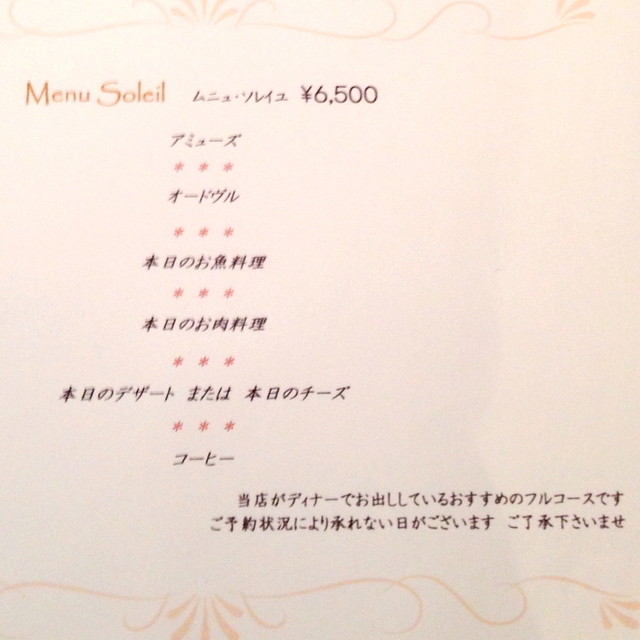 Menu Soleil ムニュ・ソレイユ ¥6,500
アミューズ
* * *
オードヴル
* * *
本日のお魚料理
* * *
本日のお肉料理
* * *
本日のデザート または 本日のチーズ
* * *
コーヒー
当店がディナーでお出ししているおすすめのフルコースです
ご予約状況により承れない日がございます ご了承下さいませ